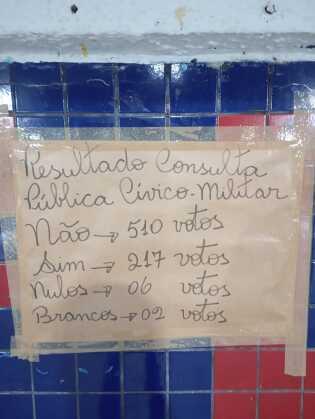 Resultado Consulta
Pública Cívico-Militar
Não → 510 votos
Sim → 217 votos
Nulos → 06 votos
Brancos → 02 votos